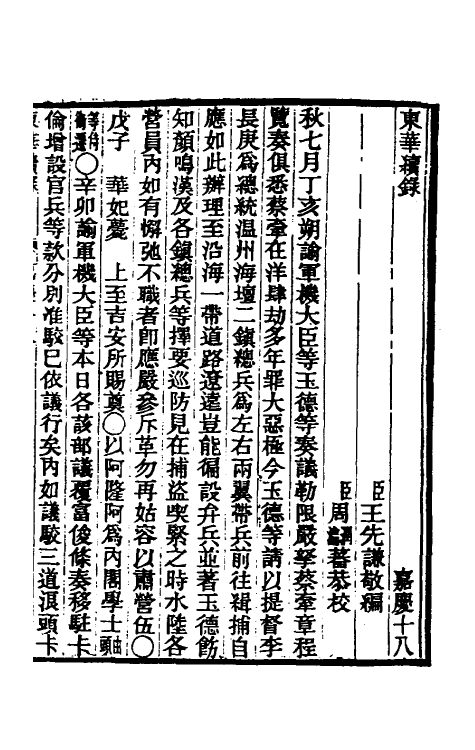 東華續錄
嘉慶十八
臣王先謙敬編
臣周蕃恭校
秋七月丁亥朔諭軍機大臣等玉德等奏議勒限嚴拏蔡牽章程
覽奏俱悉蔡牽在洋肆劫多年罪大惡極今玉德等請以提督李
長庚為總統温州海壇二鎮總兵為左右兩翼帶兵前往緝捕自
應如此辦理至沿海一帶道路遼遠豈能徧設弁兵並著玉德飭
知顏鳴漢及各鎮總兵等擇要巡防見在捕盜喫緊之時水陸各
營員內如有懈弛不職者卽應嚴參斥革勿再姑容以肅營伍〇
戊子 華妃薨 上至吉安所賜奠〇以阿隆阿為內閣學士由頭
等侍衞遷〇辛卯諭軍機大臣等本日各該部議覆富俊條奏移駐卡
倫增設官兵等款分別准駮已依議行矣內如議駮三道浪頭卡